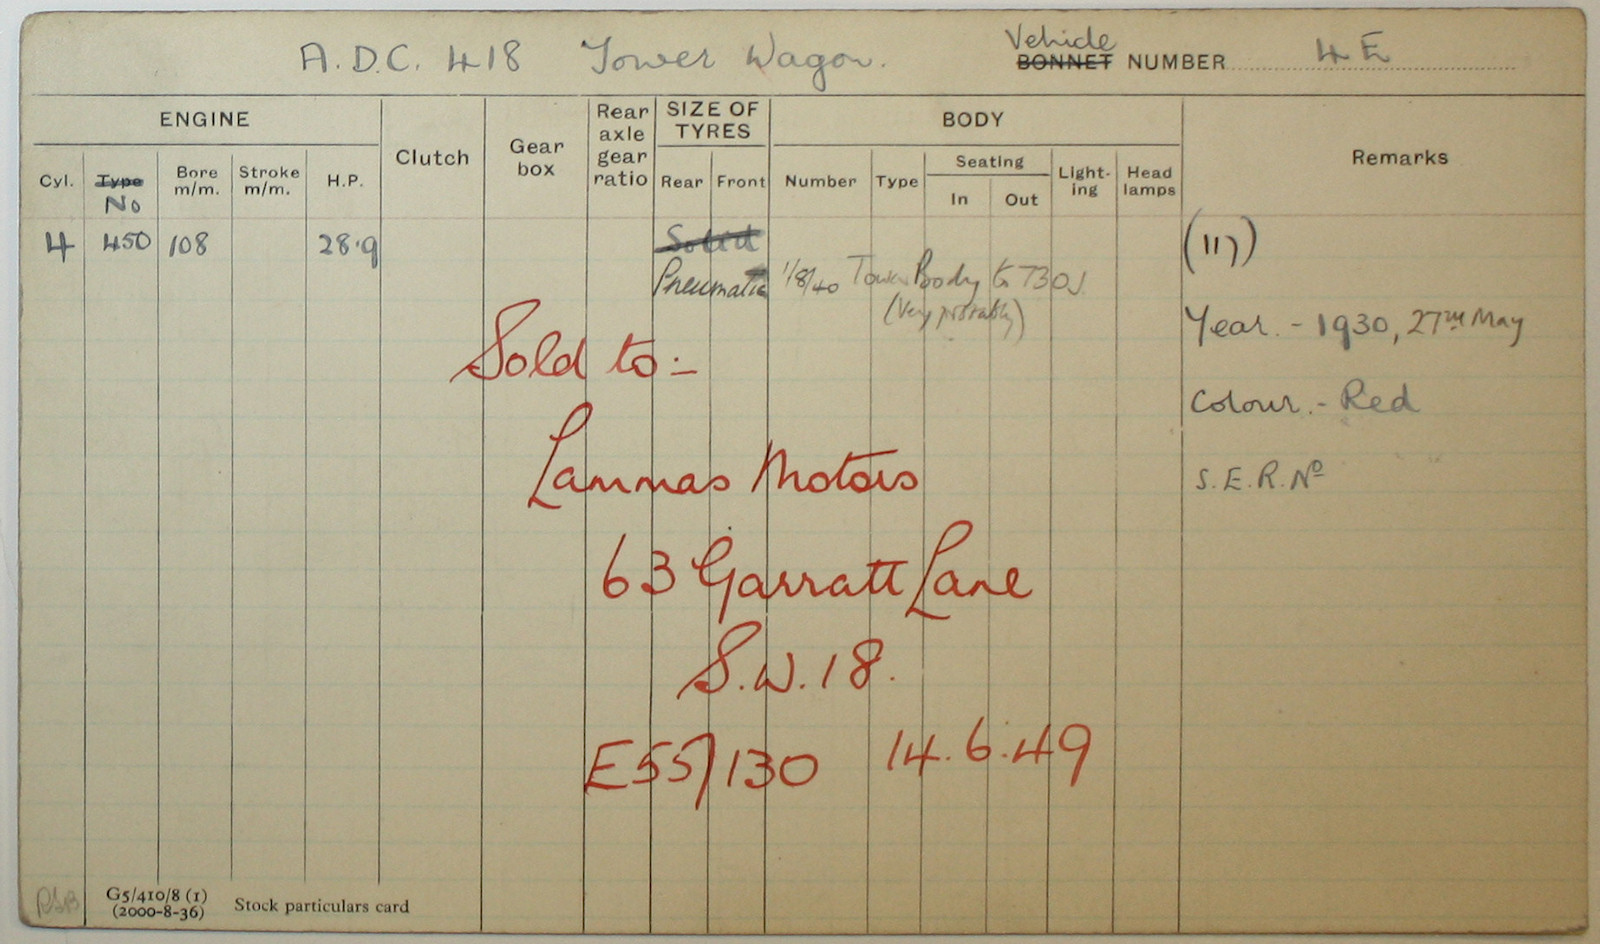 A.D.C. 418 Tower Wagon.
Vehicle
BONNET NUMBER 4E
ENGINE
Clutch
Gear box
Rear axle gear ratio
SIZE OF TYRES
BODY
Remarks
Cyl.
Type
No
Bore m/m.
Stroke m/m.
H.P.
Rear
Front
Number
Type
Seating
In
Out
Light-ing
Head lamps
4 450 108 28.9 Solid
(117)
Pneumatic 1/8/40 Tower Body to 730J.
(Very probably)
Year. - 1930, 27TH May
Colour. - Red
S.E.R. No
Sold to:-
Lammas Motors
63 Garratt Lane
S.W.18.
E557/130 14.6.49
G5/410/8 (1)
(2000-8-36)
Stock particulars card